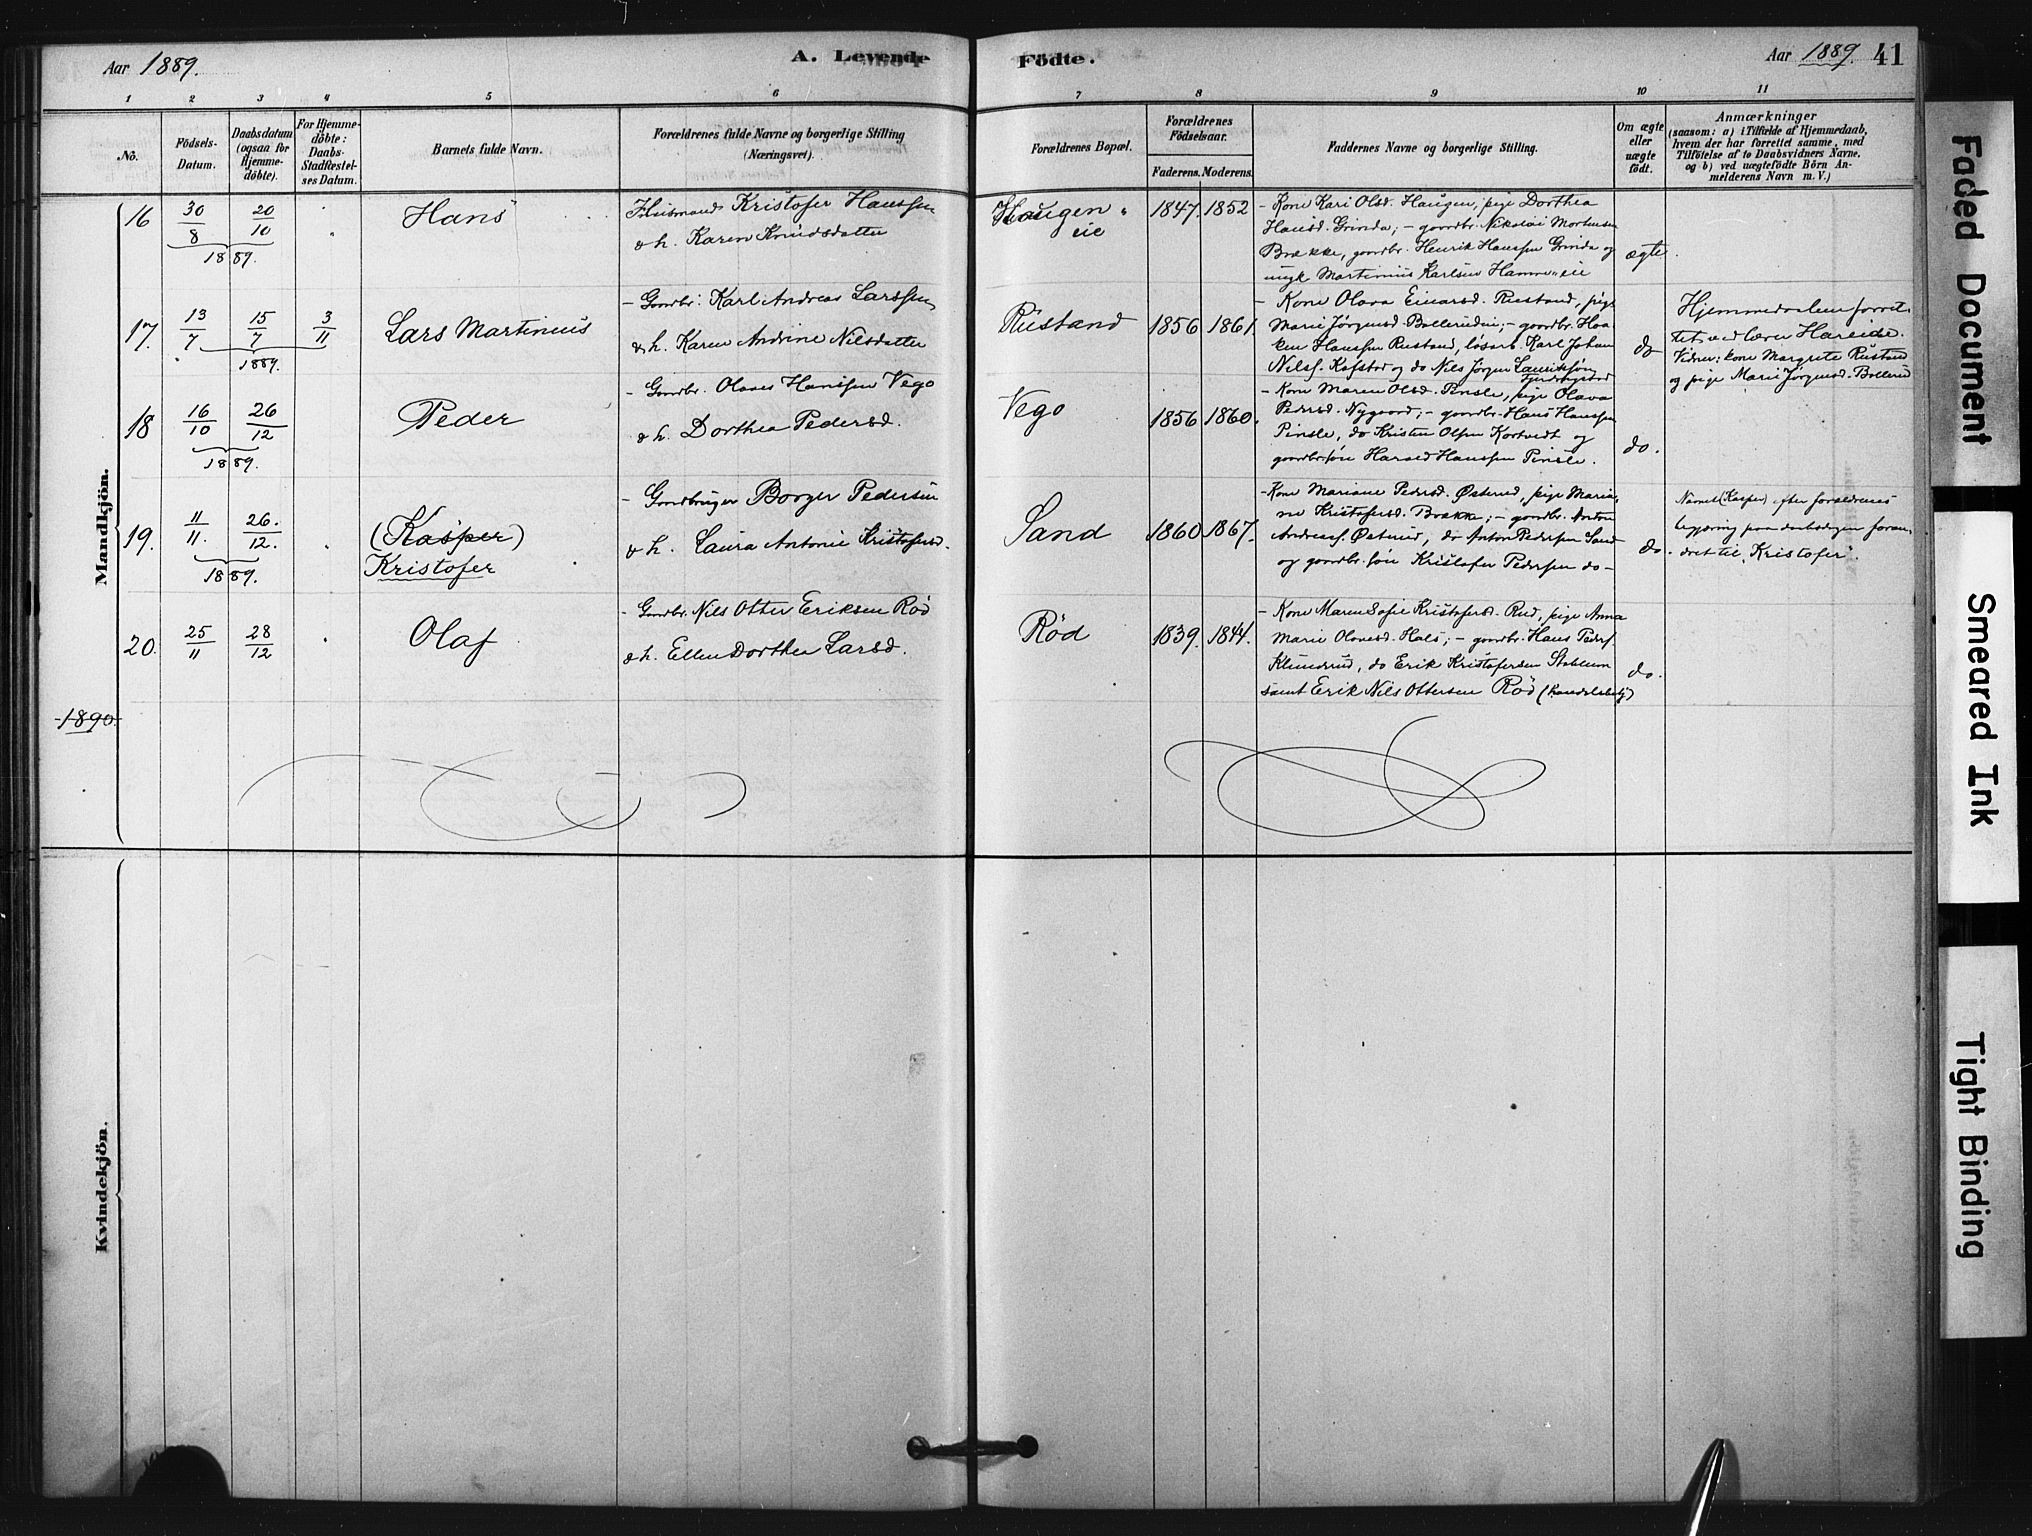 Aar 1889.
A. Levende
Födte.
Aar 1889. 41
1 2 3 4 5 6 7 8 9 10 11
No.
Födsels-
Datum.
Daabsdatum
(ogsaa for
Hjemme-
döbte).
For Hjemme-
döbte:
Daabs-
Stadfæstel-
ses Datum.
Barnets fulde Navn.
Forældrenes fulde Navne og borgerlige Stilling
(Næringsvei).
Forældrenes Bopæl.
Forældrenes
Födselsaar.
Faderens. Moderens.
Faddernes Navne og borgerlige Stilling.
Om ægte
eller
uægte
födt.
Anmærkninger
(saasom: a) i Tilfælde af Hjemmedaab,
hvem der har forrettet samme, med
Tilföielse af to Daabsvidners Navne,
og b) ved uægtefödte Börn An-
melderens Navn m. V.)
Mandkjön.
16 30/8 20/10 "
1889.
Hans
Husmand Kristofer Hanssen
& h. Karen Knudsdatter
Haugen"
eie
1847. 1852
- Kone Kari Olsd. Haugen, pige Dorthea
Hansd. Grinda; - gaardbr. Nikolai Mortensen
Brække, gaardbr. Henrik Hanssen Grinda og
ungk Martinius Karlsen Hamme"eie
ægte.
17. 13/7 15/7 3/11
1889.
Lars Martinius
- Gaardbr. Karl Andreas Larssen
& h. Karen Andrine Nilsdatter
Rustand
1856 1861.
- Kone Olava Einarsd. Rustand, pige
Marie Jørgensd. Bollerud; - gaardbr. Haa-
ken Hanssen Rustand, løsarb. Karl Johan
Nilss. Kafstad og do Nils Jørgen Lauritsøn
do
Hjemmedaaben forret-
tet ved lærer Hareide.
Vidner: kone Margrete Rustand
og pige Marie Jørgensd. Bollerud
18 16/10 26/12
1889.
Peder
- Gaardbr. Olaves Hanssen Vego
& h. Dorthea Pedersd.
Vego
1856 1860.
- Kone Maren Olsd. Pinsle, pige Olava
Pedersd. Nygaard; - gaardbr. Hans Hanssen
Pinsle, do Kristen Olsen Kortvedt og
gaardbr.søn Harald Hanssen Pinsle.
do.
19. 11/11. 26./12. "
1889.
(Kasper)
Kristofer
- Gaardbruger Borger Pedersen
& h. Laura Antonie Kristofersd.
Sand
1860 1867.
- Kone Mariane Pedersd. Østerud, pige Maria-
ne Kristofersd. Brække; - gaardbr. Anton
Andreass. Østerud, do Anton Pedersen Sand
og gaardbr.søn Kristofer Pedersen do-
do.
Navnet (Kasper) efter forældrenes
begjæring paa daabsdagen foran-
dret til "Kristofer".
20. 25/11 28/12 "
Olaf
- Gaardbr. Nils Otter Eriksen Rød
& h. Ellen Dorthea Larsd.
Rød
1839. 1844.
- Kone Maren Sofie Kristofersd. Rud, pige Anna
Marie Olavesd. Hals; - gaardbr. Hans Peders.
Klunderud, do Erik Kristofersen Stablum
samt Erik Nils Ottersen Rød (handelsbetj)
do.
1890.
Kvindekjön.
Faded Document
Smeared Ink
Tight Binding